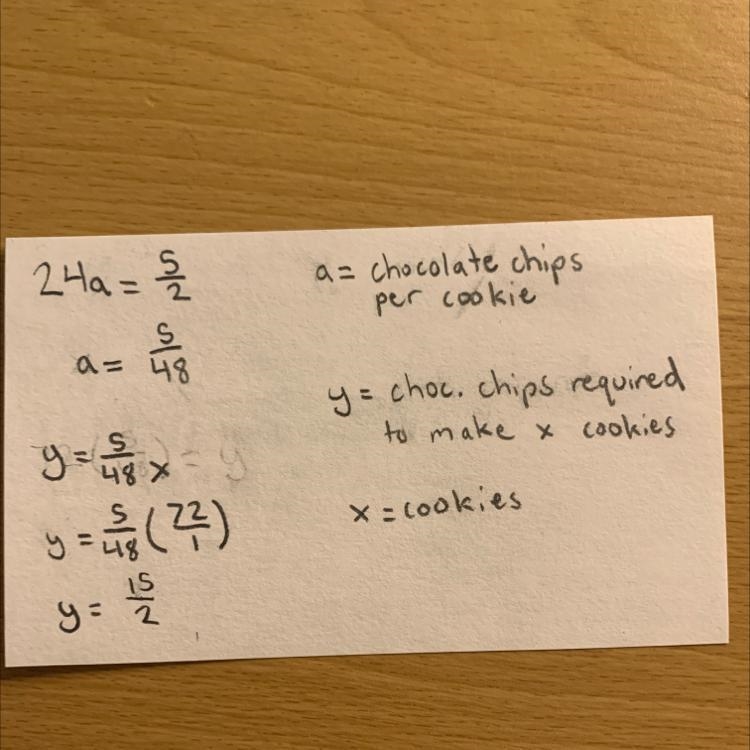 24a = 5/2
a = 5/48
y = 5/48 x
y = 5/48 (72/1)
y = 15/2
a = chocolate chips
per cookie
y = choc. chips required
to make x cookies
x = cookies